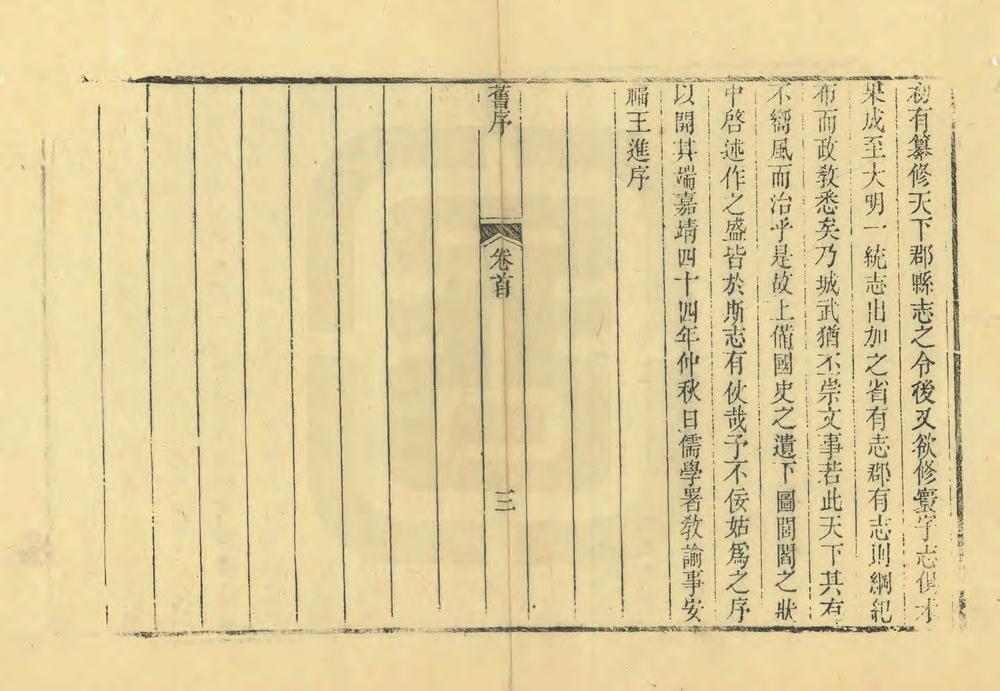 初有纂修天下郡縣志之令後又欲修寰宇志俱未
果成至大明一統志出加之省有志郡有志則綱紀
布而政敎悉矣乃城武猶丕崇文事若此天下其有
不嚮風而治乎是故上備國史之遺下圖閭閻之狀
中啓述作之盛皆於斯志有伏哉予不佞姑爲之序
以開其端嘉靖四十四年仲秋日儒學署敎諭事安
福王進序
舊序
卷首
三